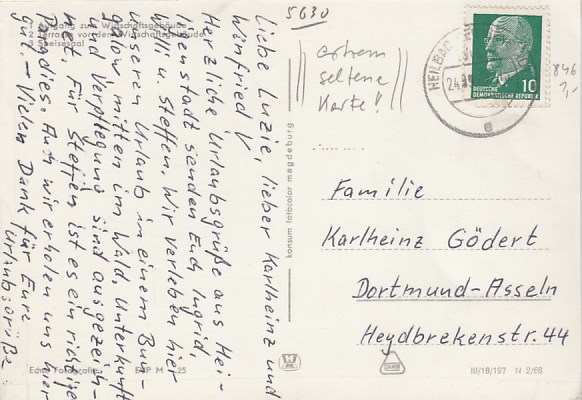 5630
extrem
seltene
Karte!!
846
7,-
HEILBAD
24.
10
DEUTSCHE
DEMOKRATISCHE REPUBLIK
1 Eingang zum Wirtschaftsgebäude
2 Terrasse vor dem Wirtschaftsgebäude
3 Speisesaal
Liebe Luzie, lieber Karlheinz und
Winfried!
Herzliche Urlaubsgrüße aus Hei-
ligenstadt senden Euch Ingrid,
Willi u. Steffen. Wir verleben hier
unseren Urlaub in einem Bun-
galow mitten im Wald. Unterkunft
und Verpflegung sind ausgezeich-
net. Für Steffen ist es ein richtiges
Paradies. Auch wir erholen uns hier
gut. – Vielen Dank für Eure
Urlaubsgrüße.
konsum fotocolor magdeburg
Familie
Karlheinz Gödert
Dortmund-Asseln
Heydbrekenstr. 44
Echte Fotografie
EVP M
25
III/18/197 N 2/66